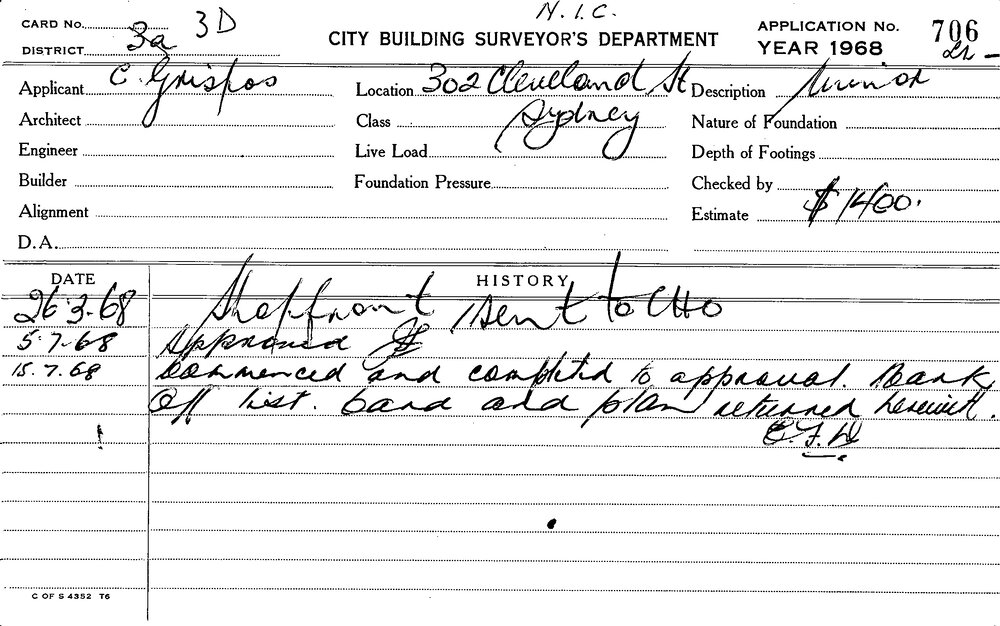 N.I.C.
CARD No. 3D
DISTRICT 3a
CITY BUILDING SURVEYOR'S DEPARTMENT
APPLICATION No. 706
YEAR 1968
Applicant C. Grispos
Location 302 Cleveland St
Sydney
Description Minor
Architect
Class
Nature of Foundation
Engineer
Live Load
Depth of Footings
Builder
Foundation Pressure
Checked by
Alignment
Estimate $1400.
D.A.
DATE HISTORY
26.3.68 Shopfront sent to CHO
5.7.68 Approved
15.7.68 Commenced and completed to approval. Mark
off list. Card and plan returned herewith.
C OF S 4352 T6